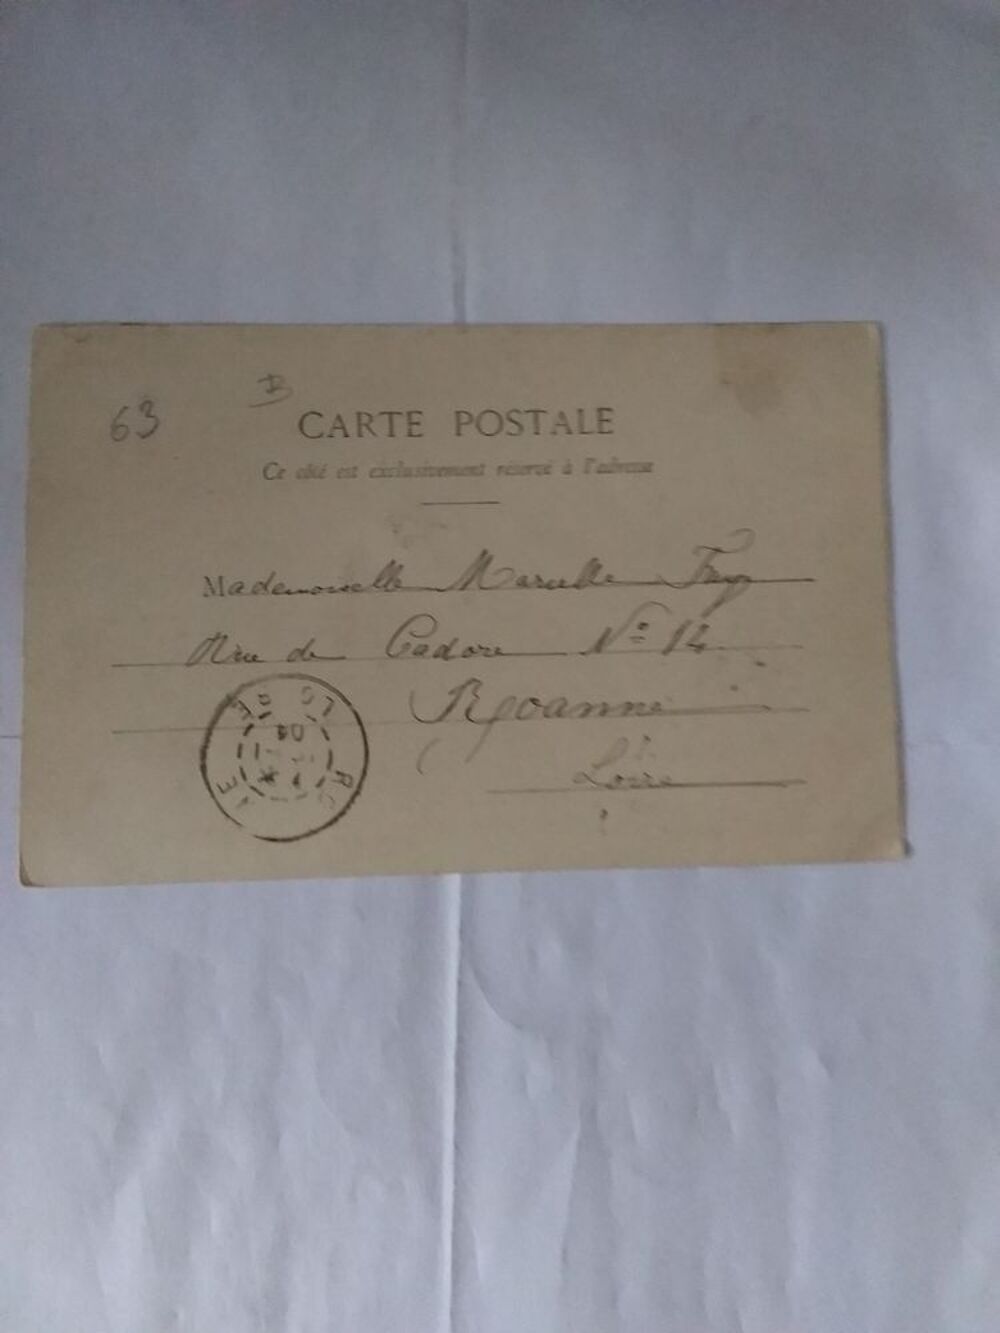 63
CARTE POSTALE
Ce côté est exclusivement réservé à l'adresse
Mademoiselle Marcelle
Rue de Cadore Nº 14
Roanne
Loire
04